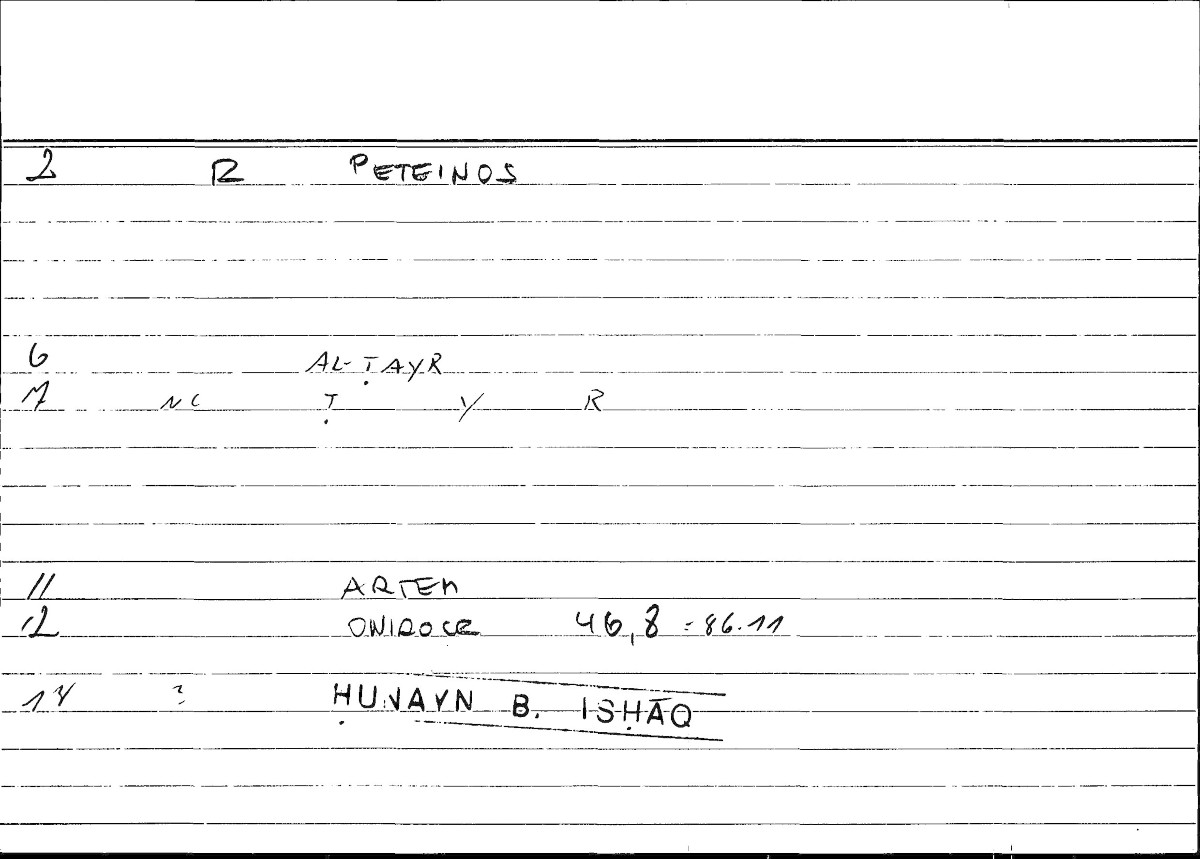 2 R PETEINOS
6 AL-ṬAYR
7 NC Ṭ Y R
11 ARTEM
12 ONIROCR 46,8 = 86.11
14 ? ḤUNAYN B. ISḤĀQ